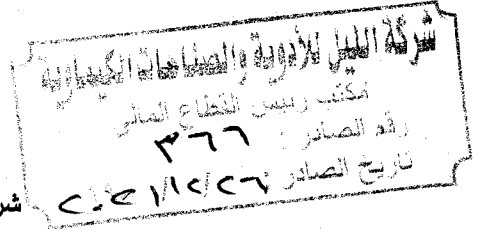 شركة النيل للأدوية والصناعات الكيماوية
مكتب رئيس القطاع المالي
رقم الصادر : ٣٦٦
تاريخ الصادر ٢٠٢١/١٢/٢٦
شر